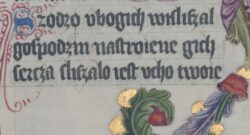 Szodzo vbogich wisliszal
gospodzin nastroiene gich
sercza sliszalo iest vcho twoie